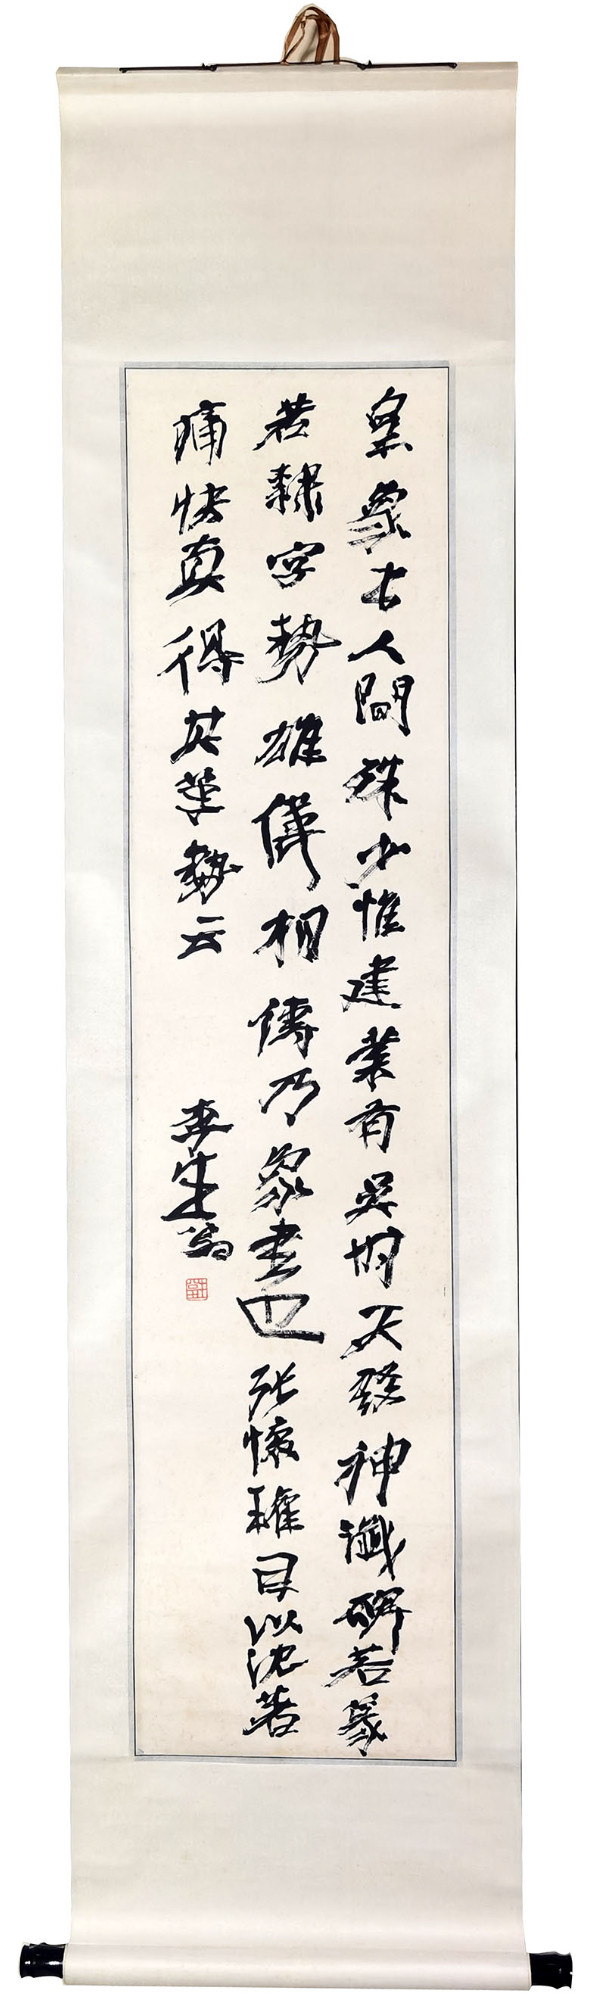 皇象書人間殊少惟建業有吳時天發神讖碑若篆
若隸字勢雄偉相傳乃象書也張懷瓘目以沈著
痛快真得其筆勢云
李生翁